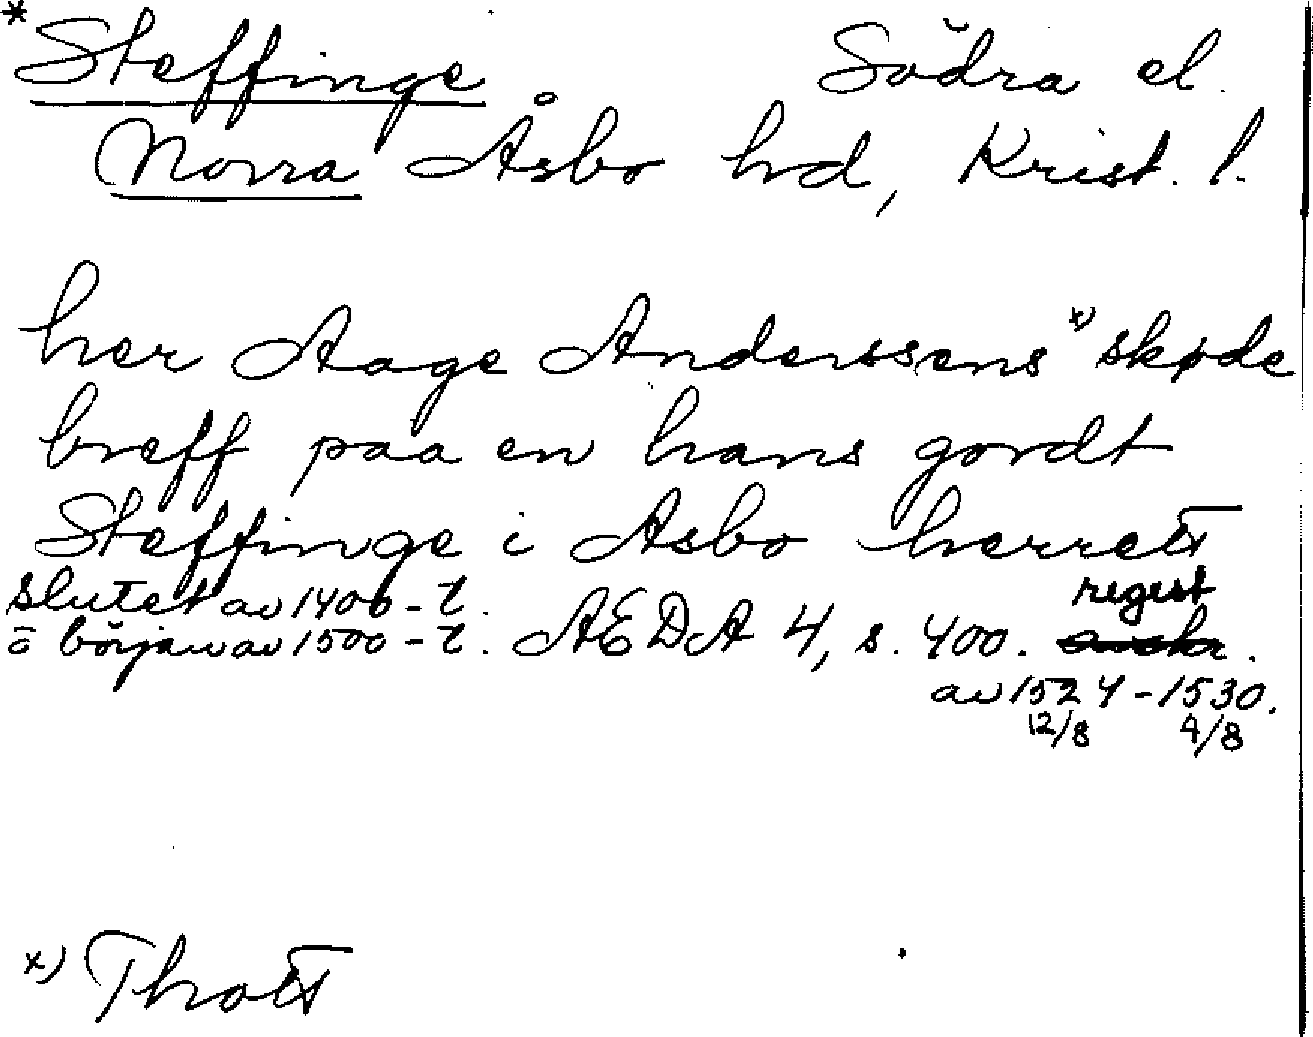 * Steffinge Södra el.
Norra Åsbo hd, Krist. l.
her Aage Anderssens x) skøde
breff paa en hans gordt
Steffinge i Asbo herrett
slutet av 1400-t.
o början av 1500-t. AEDA 4, s. 400. regest
av 1524-1530.
12/8 4/8
x) Thott